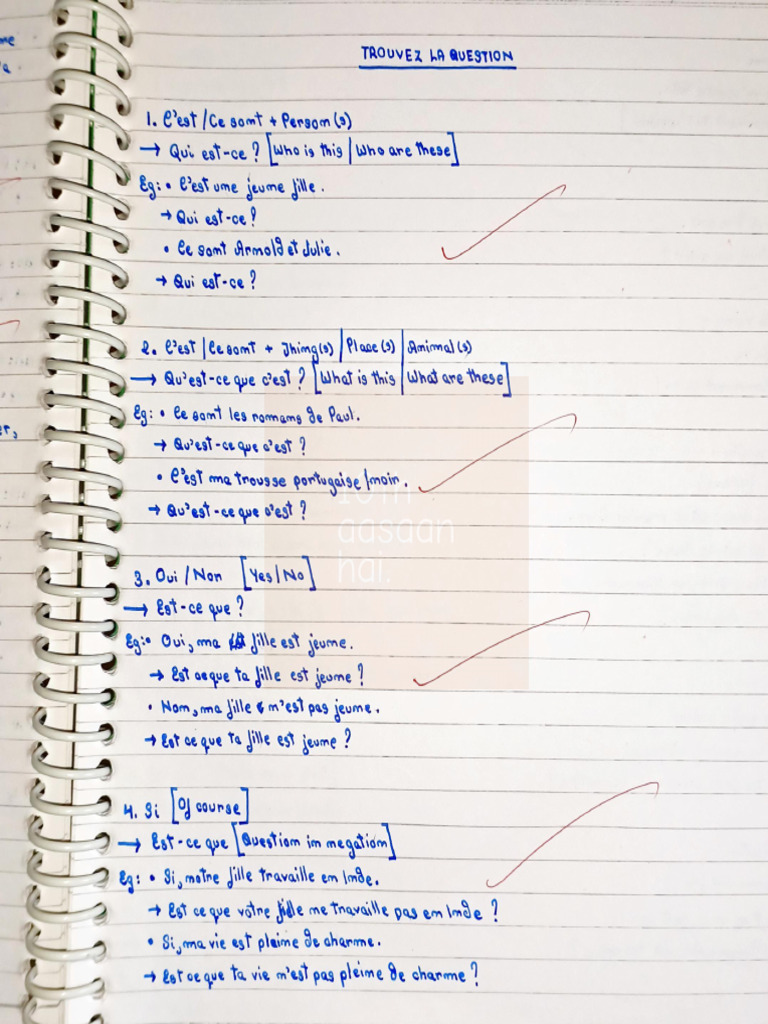 TROUVEZ LA QUESTION
1. C'est/Ce sont + Person(s)
→ Qui est-ce? [Who is this | Who are these]
Eg: • C'est une jeune fille.
→ Qui est-ce?
• Ce sont Arnold et Julie.
→ Qui est-ce?
2. C'est | Ce sont + Thing(s) | Place(s) | Animal(s)
→ Qu'est-ce que c'est? [What is this | What are these]
Eg: • Ce sont les romans de Paul.
→ Qu'est-ce que c'est?
• C'est ma trousse portugaise/noir.
→ Qu'est-ce que c'est?
10th
aasaan
hai.
3. Oui/Non [Yes/No]
→ Est-ce que?
Eg: • Oui, ma fille est jeune.
→ Est ce que ta fille est jeune?
• Non, ma fille n'est pas jeune.
→ Est ce que ta fille est jeune?
4. Si [Of course]
→ Est-ce que [Question in negation]
Eg: • Si, notre fille travaille en Inde.
→ Est ce que votre fille ne travaille pas en Inde?
• Si, ma vie est pleine de charme.
→ Est ce que ta vie n'est pas pleine de charme?